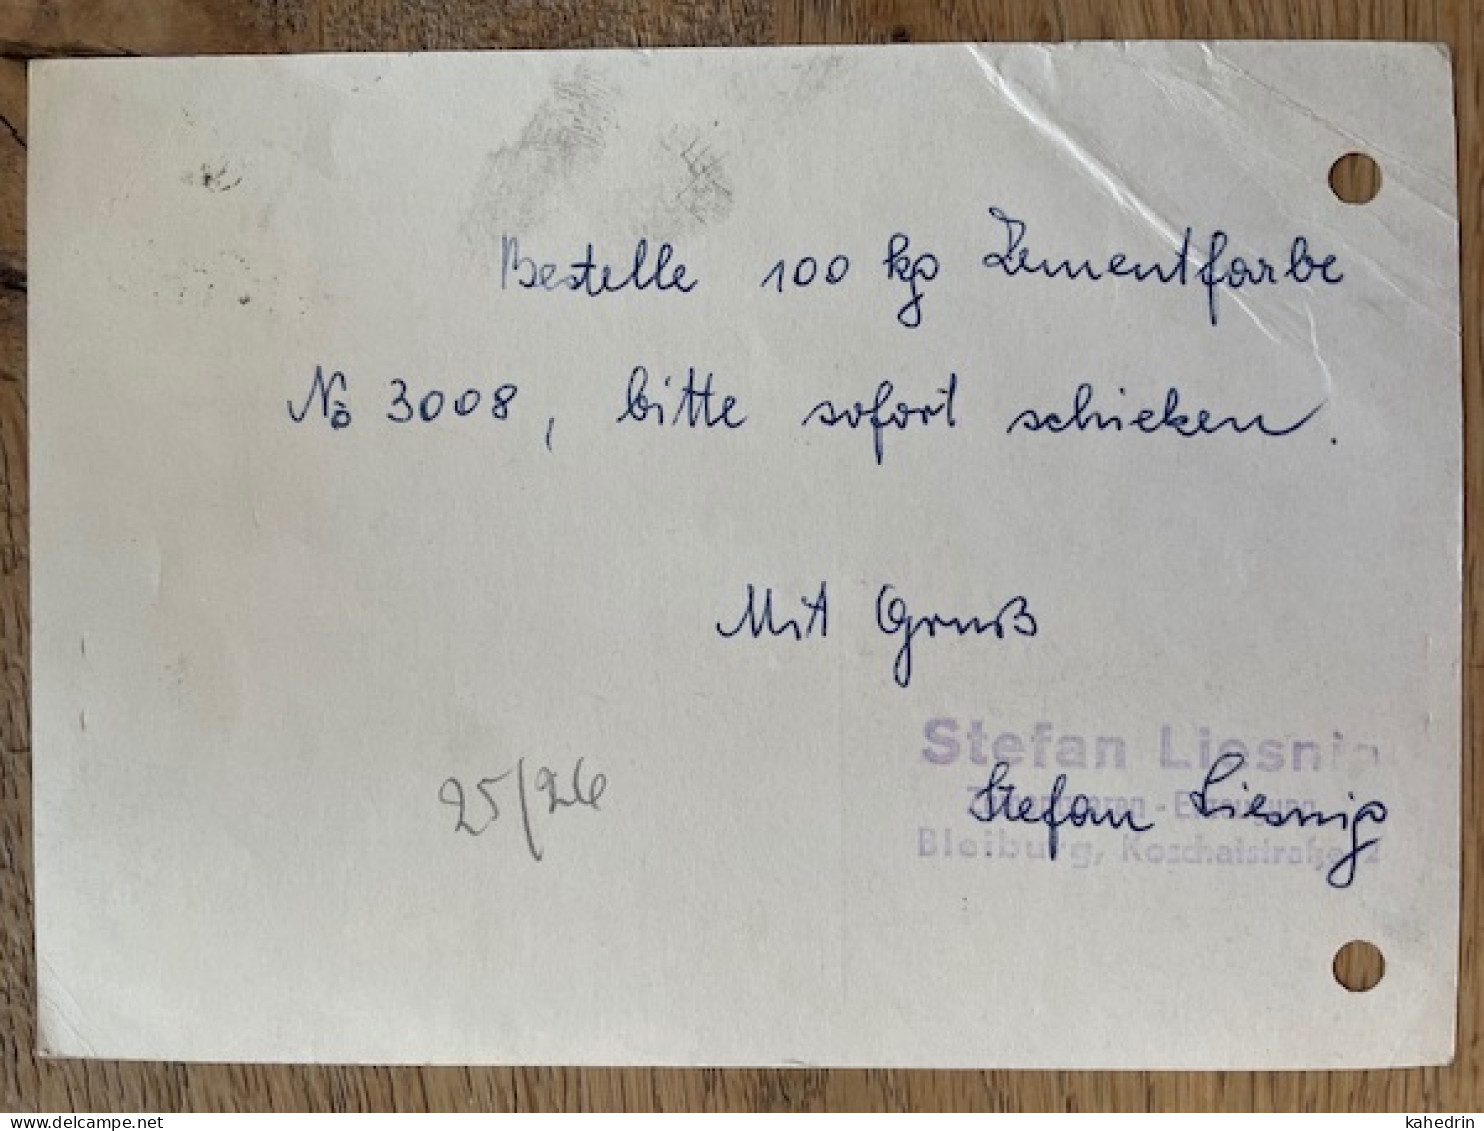 Bestelle 100 kg Zementfarbe
No 3008, bitte sofort schicken.
Mit Gruß
Stefan Liesnig
Stefan Liesnig
Bleiburg, Koschatstraße 2
25/26
delcampe.net
kahedrin